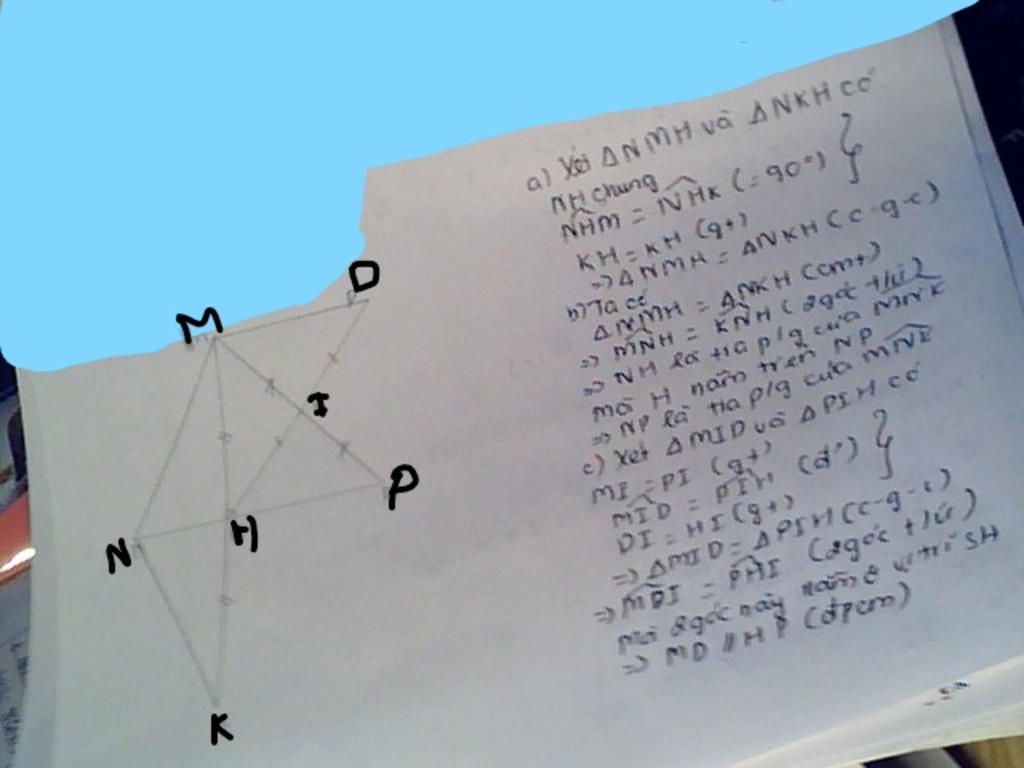 D
M
I
P
N
H
K
a) Xét ΔNMH và ΔNKH có
NH chung
N̂HM = N̂HK (= 90°) }
KH = KH (gt)
=> ΔNMH = ΔNKH (c-g-c)
b) Ta có
ΔNMH = ΔNKH (cmt)
=> M̂NH = K̂NH (2góc t/ứ)
=> NH là tia p/g của M̂NK
mà H nằm trên NP
=> NP là tia p/g của M̂NK
c) Xét ΔMID và ΔPIH có
MI = PI (gt)
M̂ID = P̂IH (đ²) }
DI = HI (gt)
=> ΔMID = ΔPIH (c-g-c)
=> M̂DI = P̂HI (2góc t/ứ)
mà 2góc này nằm ở vị trí SH
=> MD // HP (đpcm)